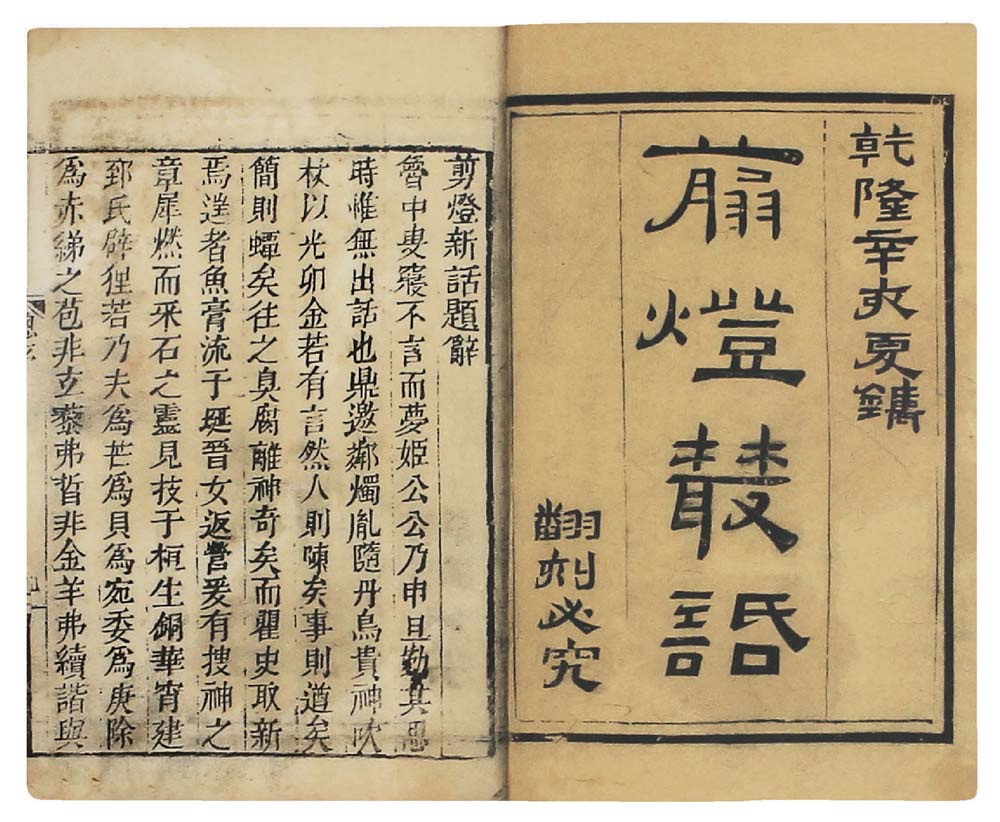 乾隆辛亥夏鐫
翦燈叢話
翻刻必究
剪燈新話題辭
魯中叟寢不言而夢姬公公乃申旦勤其思
時惟無出話也鼎邀鄰燭胤隨丹鳥貴神吹
杖以光卯金若有言然人則陳矣事則道矣
簡則蟫矣往之臭腐離神奇矣而瞿史取新
焉者魚膏流于埏晉女返營爰有搜神之
章犀燃而采石之靈見技于桓生銅華宵建
郅氏辟狸若乃夫為芒為貝為宛委為庚除
為赤綈之苞非立藜弗晳非金羊弗續諧與